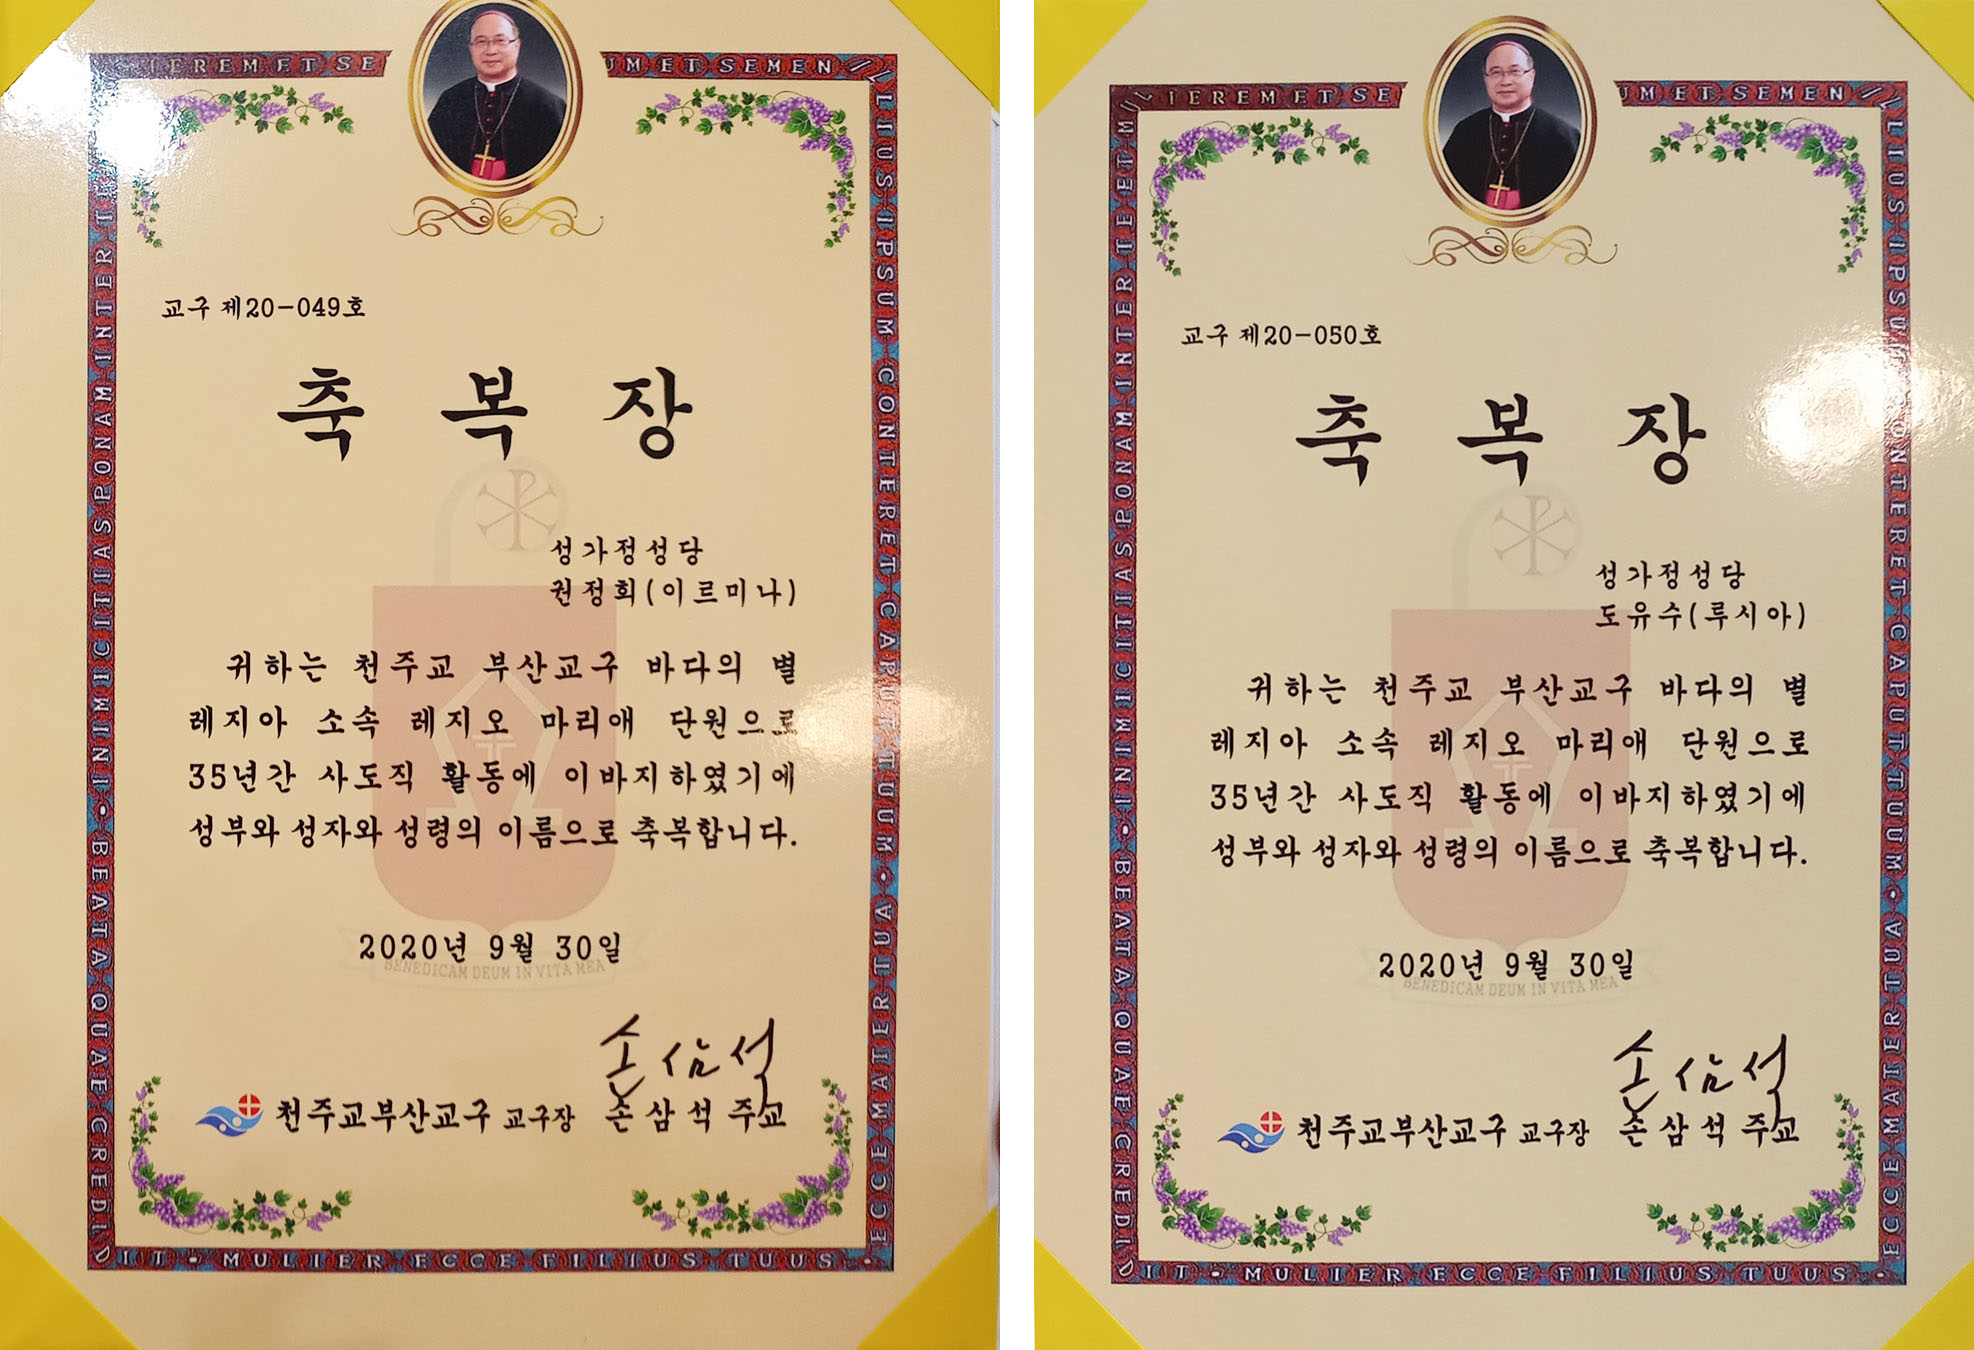 IEREM ET SE
UM ET SEMEN IL
LIUS IPSUM CONTERET CAPUT TUUM • AUT
ECCE MATER TUA
INIMICITIAS PONAM INTER TE
BEATA QUAE CREDID
IT • MULIER ECCE FILIUS TUUS •
교구 제20-049호
축 복 장
성가정성당
권정희(이르미나)
귀하는 천주교 부산교구 바다의 별
레지아 소속 레지오 마리애 단원으로
35년간 사도직 활동에 이바지하였기에
성부와 성자와 성령의 이름으로 축복합니다.
2020년 9월 30일
BENEDICAM DEUM IN VITA MEA
손삼석
천주교부산교구 교구장 손삼석 주교
MULIEREM ET SE
UM ET SEMEN IL
LIUS IPSUM CONTERET CAPUT TUUM •
ECCE MATER TUA
INIMICITIAS PONAM INTER TE ET
BEATA QUAE CREDID
IT • MULIER ECCE FILIUS TUUS •
교구 제20-050호
축 복 장
성가정성당
도유수(루시아)
귀하는 천주교 부산교구 바다의 별
레지아 소속 레지오 마리애 단원으로
35년간 사도직 활동에 이바지하였기에
성부와 성자와 성령의 이름으로 축복합니다.
2020년 9월 30일
BENEDICAM DEUM IN VITA MEA
손삼석
천주교부산교구 교구장 손삼석 주교